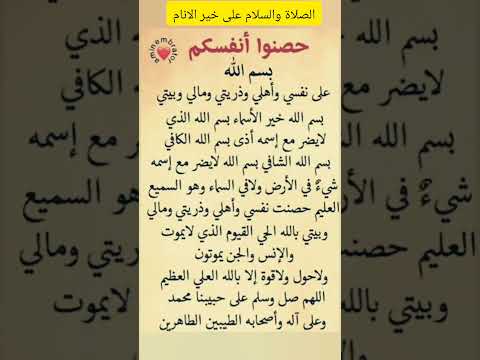 الصلاة والسلام على خير الانام
حصنوا أنفسكم
aminembrator
بسم الله
على نفسي وأهلي وذريتي ومالي وبيتي
بسم الله خير الأسماء بسم الله الذي
لايضر مع إسمه أذى بسم الله الكافي
بسم الله الشافي بسم الله لايضر مع إسمه
شيءٌ في الأرض ولافي السماء وهو السميع
العليم حصنت نفسي وأهلي وذريتي ومالي
وبيتي بالله الحي القيوم الذي لايموت
والإنس والجن يموتون
ولاحول ولاقوة إلا بالله العلي العظيم
اللهم صل وسلم على حبيبنا محمد
وعلى آله وأصحابه الطيبين الطاهرين